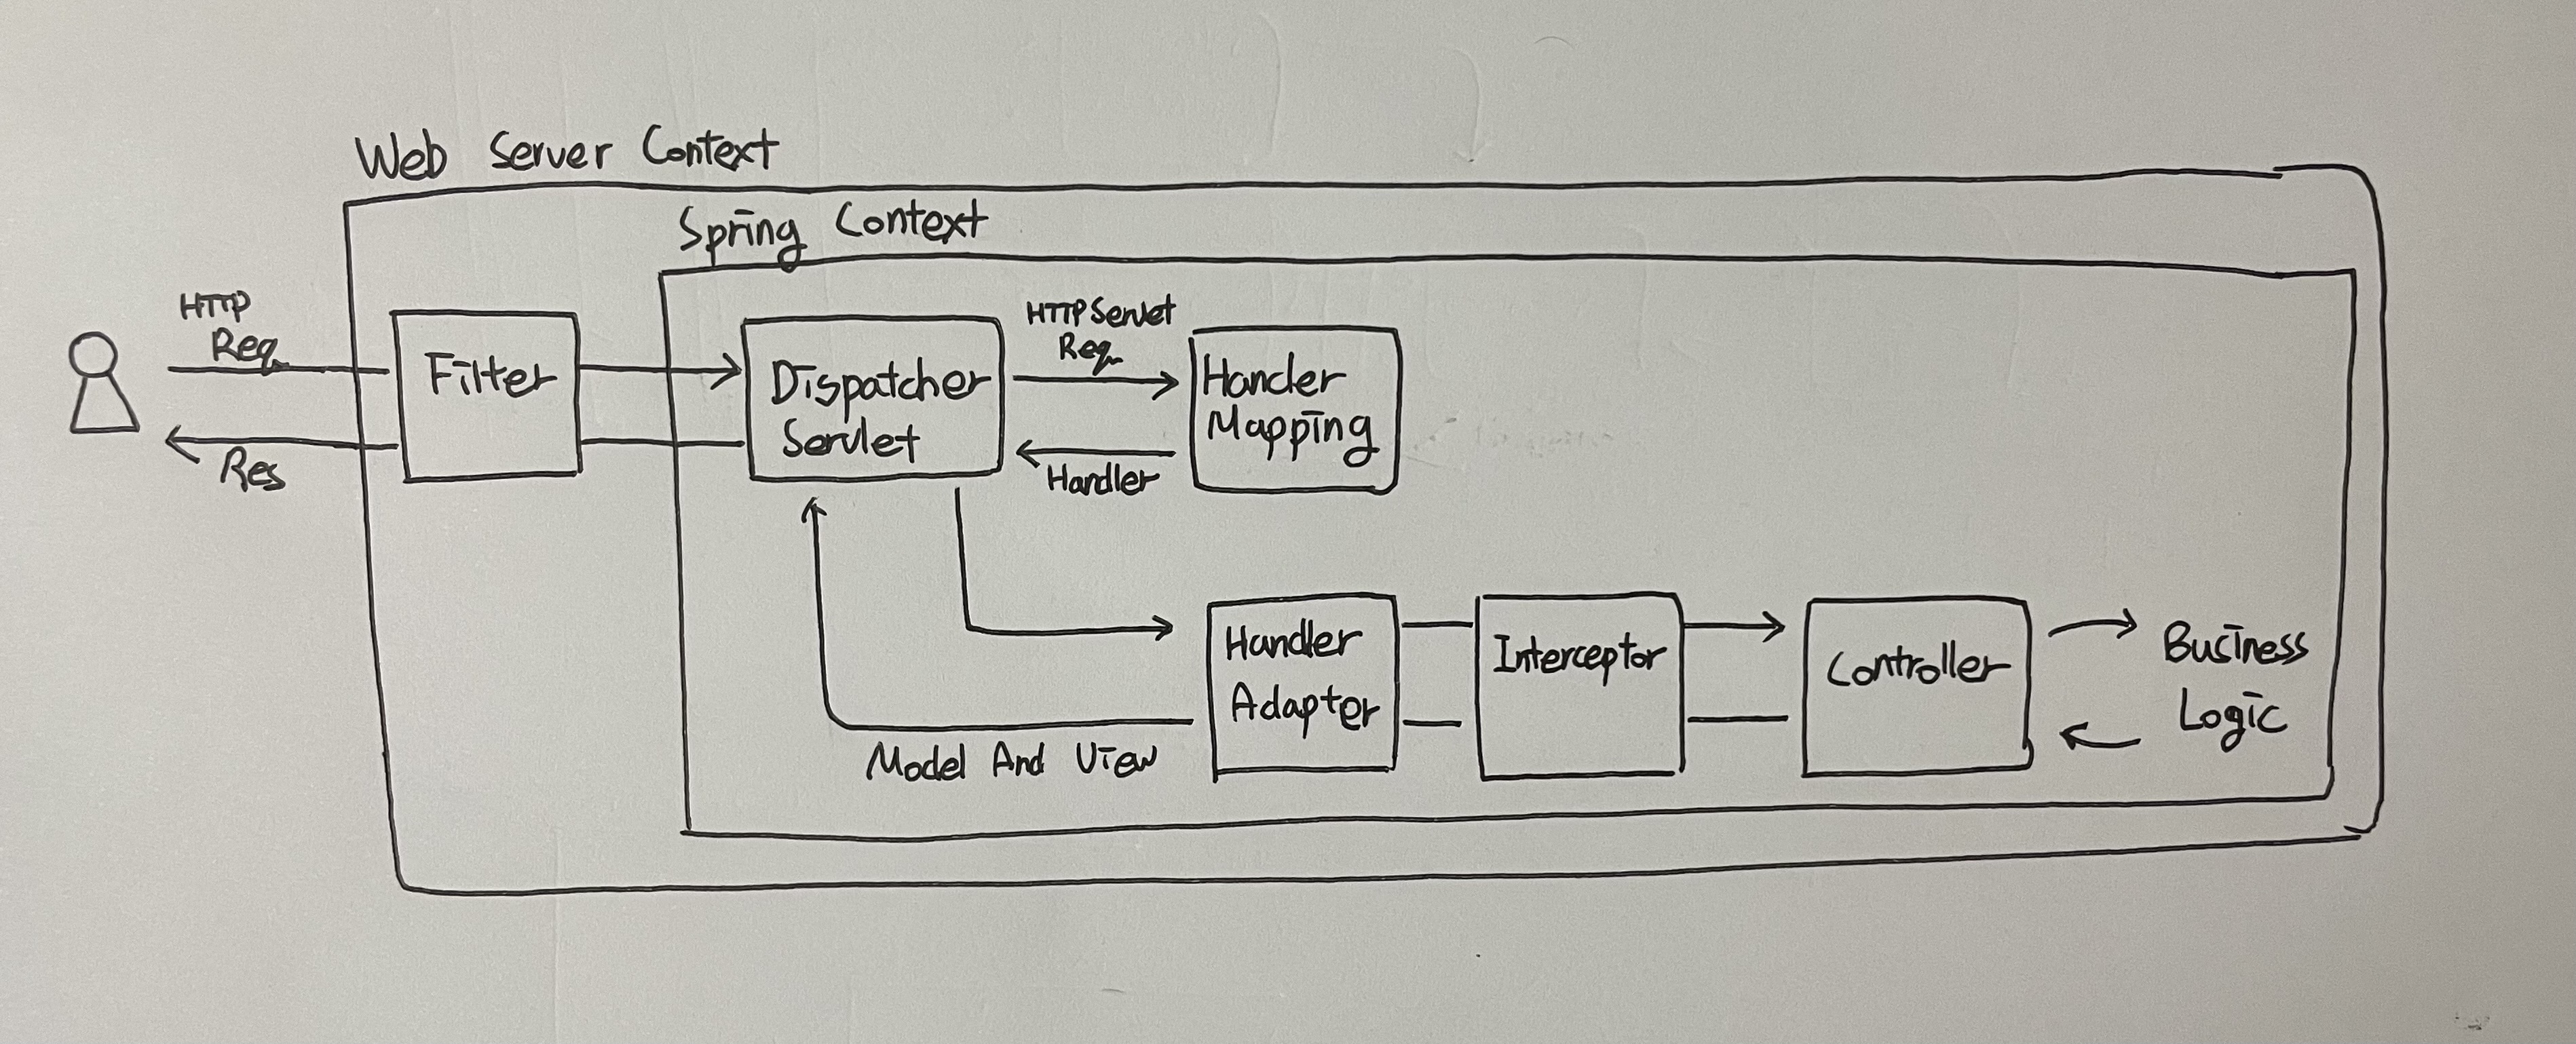 Web Server Context
Spring Context
HTTP
Req
Res
Filter
Dispatcher
Servlet
HTTP Servlet
Req
Handler
Hander
Mapping
Handler
Adapter
Model And View
Interceptor
Controller
Business
Logic